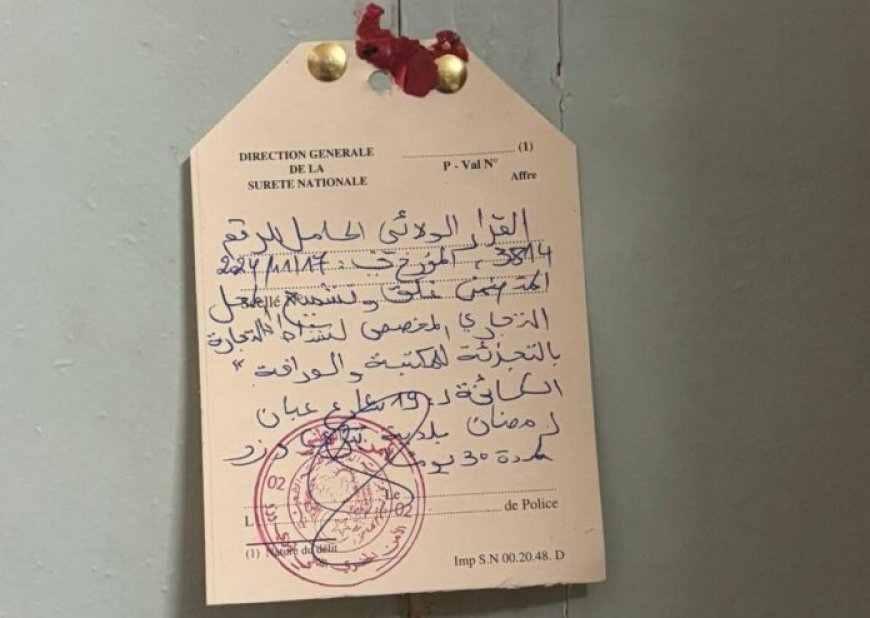 DIRECTION GENERALE
DE LA
SURETE NATIONALE
(1)
P - Val N°
Affre
القرار الولائي الحامل للرقم
3814 ، المؤرخ في : 2024/11/17
المتضمن غلق و تشميع المحل
Scellé
التجاري المخصص لنشاط "التجارة
بالتجزئة للمكتبة و الوراقة"
الكائنة لـ : 19 شارع عبان
رمضان بلدية تيزي وزو
لمدة 30 يوما
Le
L
de Police
02
02
(1) Nature du délit
Imp S.N 00.20.48. D